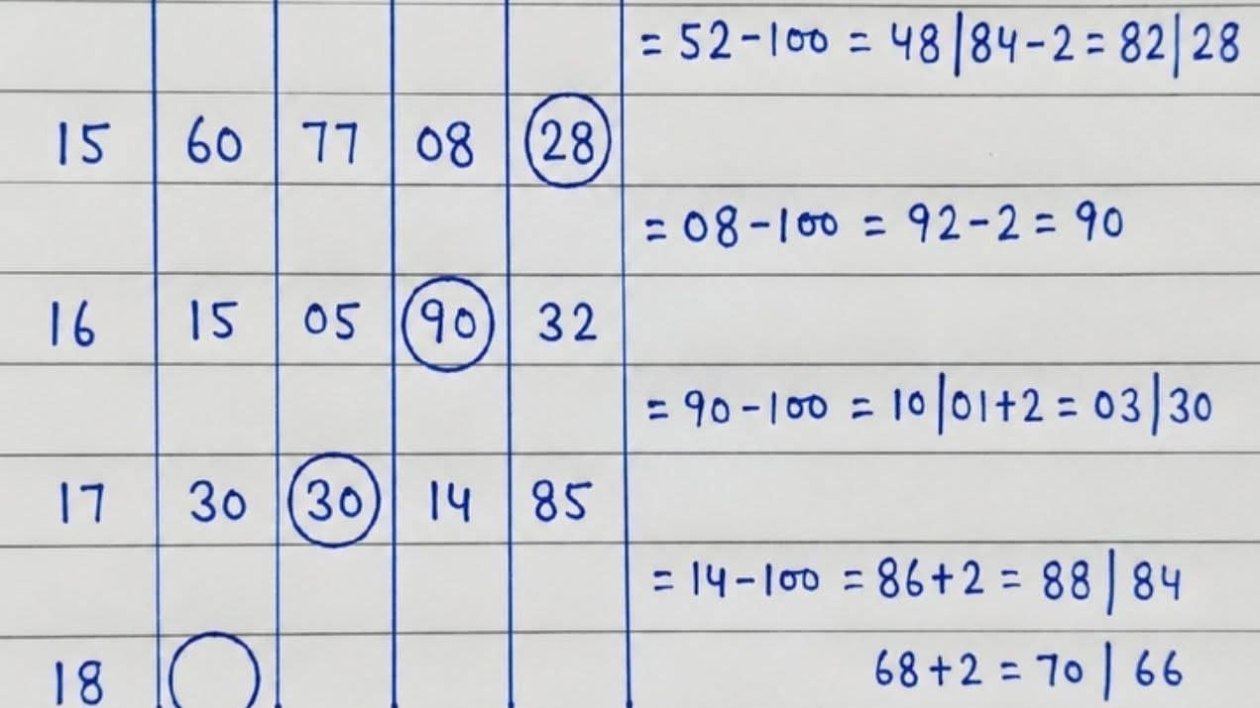 = 52-100 = 48|84-2 = 82|28
15 60 77 08 28
= 08-100 = 92-2 = 90
16 15 05 90 32
= 90-100 = 10|01+2 = 03|30
17 30 30 14 85
= 14-100 = 86+2 = 88|84
18 68+2 = 70|66